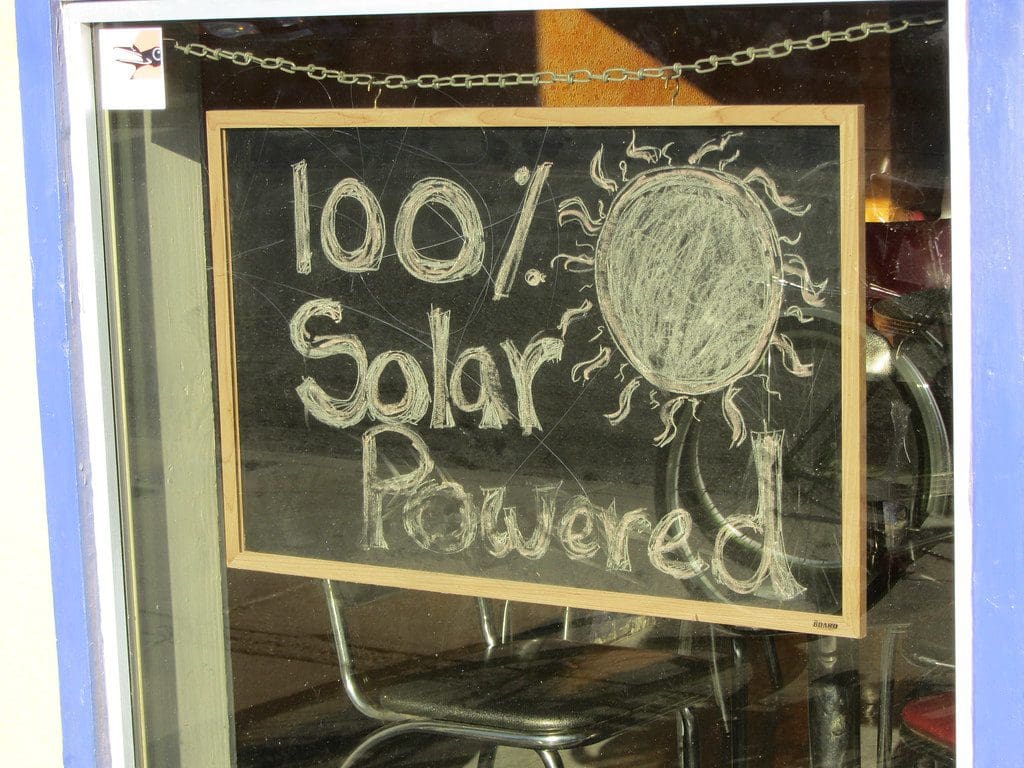 100%
Solar
Powered
BOARD